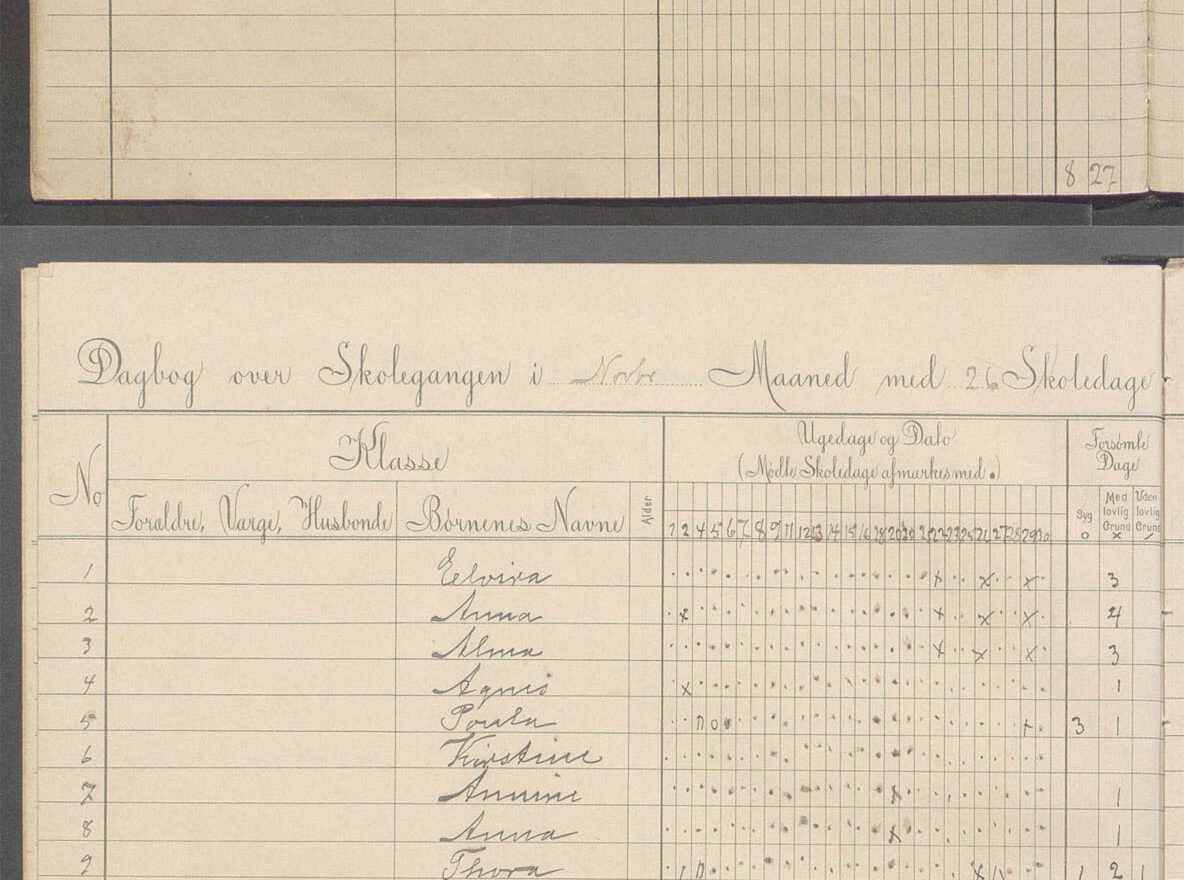 8 27
Dagbog over Skolegangen i Novbr Maaned med 26 Skoledage
No
Klasse
Ugedage og Dato
(Mødte Skoledage afmærkes med .)
Forsømte
Dage
Forældre, Værge, Husbonde
Børnenes Navne
Alder
Syg
o
Med
lovlig
Grund
x
Uden
lovlig
Grund
/
1 2 4 5 6 7 8 9 11 12 13 14 15 16 18 19 20 21 22 23 25 26 27 28 29 30
1 Elvira x x x 3
2 Anna x x x x 4
3 Alma x x x 3
4 Agnes x 1
5 Poula 0 0 x 3 1
6 Kirstine
7 Annine x 1
8 Anna x 1
9 Thora 1 2 1